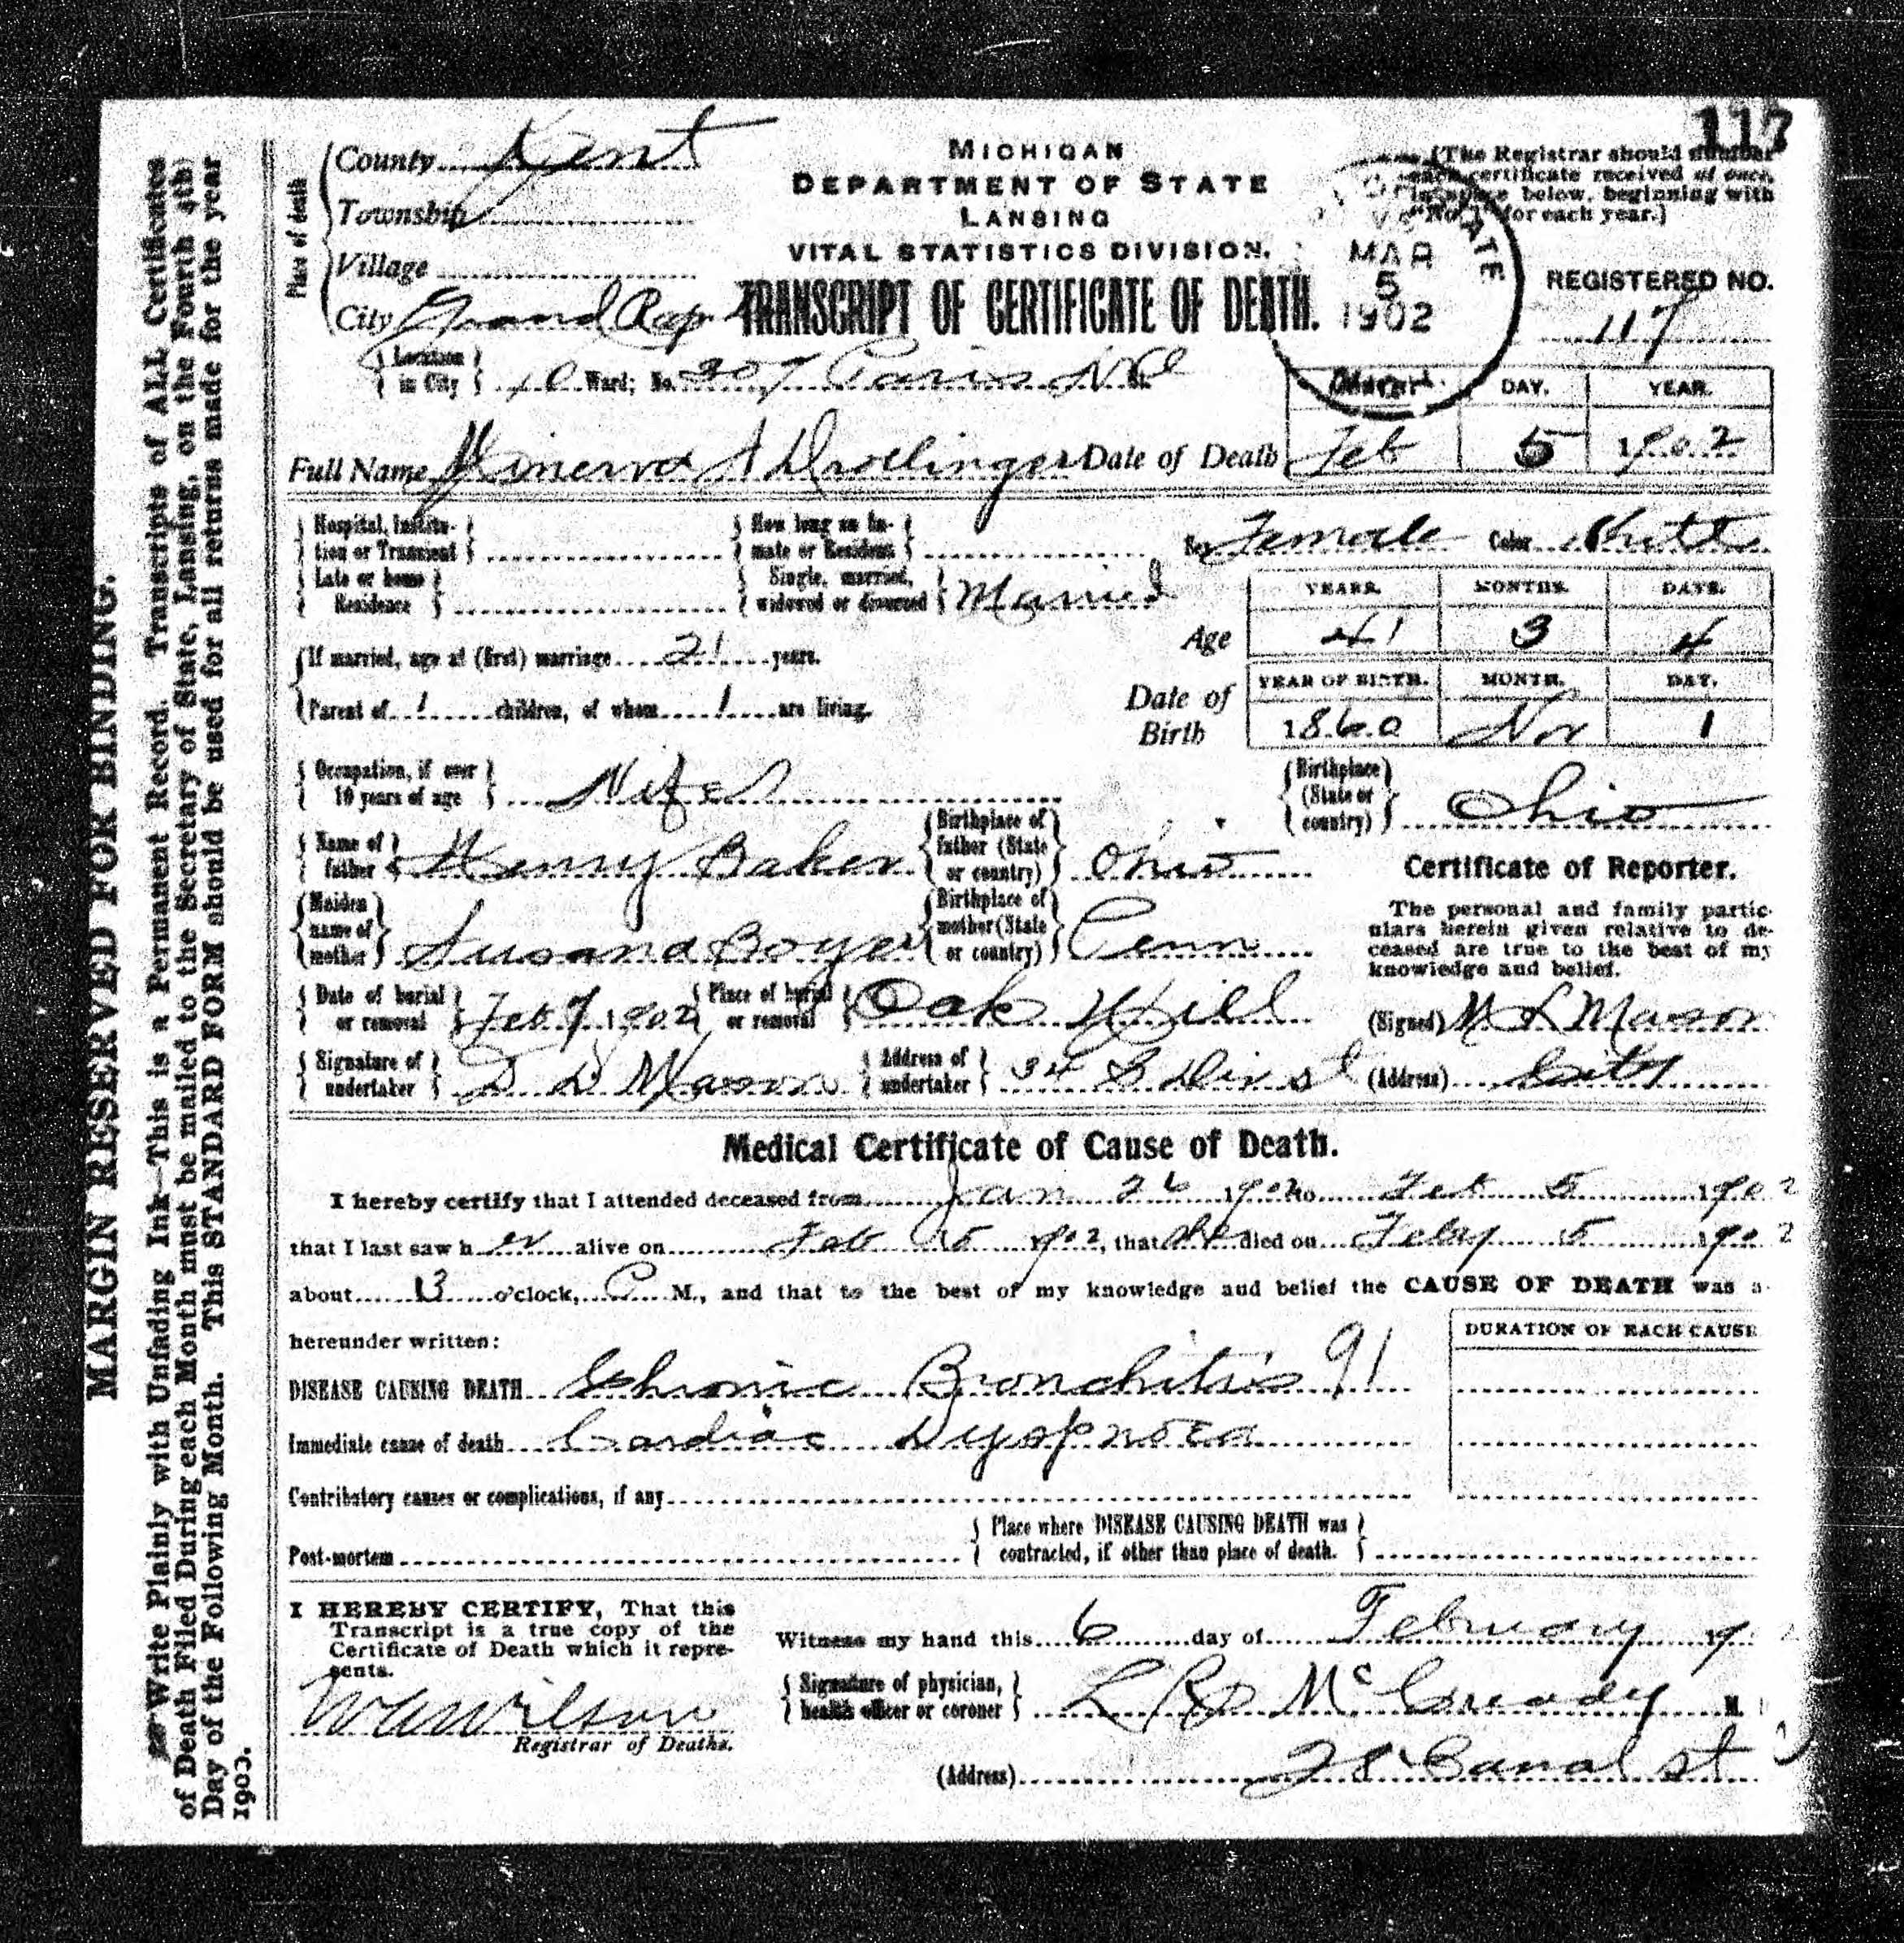 117
MARGIN RESERVED FOR BINDING.
Write Plainly with Unfading Ink—This is a Permanent Record. Transcripts of ALL Certificates
of Death Filed During each Month must be mailed to the Secretary of State, Lansing, on the Fourth 4th)
Day of the Following Month. This STANDARD FORM should be used for all returns made for the year
1903.
Place of death
County Kent
Township
Village
City Grand Rap
MICHIGAN
DEPARTMENT OF STATE
LANSING
VITAL STATISTICS DIVISION.
TRANSCRIPT OF CERTIFICATE OF DEATH.
(The Registrar should number
each certificate received at once,
in space below, beginning with
"No. 1" for each year.)
STATE
MAR
5
1902
REGISTERED NO.
117
Location in City 10 Ward; No. 207 Paris St.
DAY. YEAR.
Full Name Minerva Drollinger Date of Death Feb 5 1902
Hospital, Institution or Transient
How long an Inmate or Resident
Sex Female Color White
Late or home Residence
Single, married, widowed or divorced Married
YEARS. MONTHS. DAYS.
Age 41 3 4
If married, age at (first) marriage 21 years.
Parent of 1 children, of whom 1 are living.
YEAR OF BIRTH. MONTH. DAY.
Date of Birth 1860 Nov 1
Occupation, if over 10 years of age Wife
Birthplace (State or country) Ohio
Name of father Henry Baker Birthplace of father (State or country) Ohio
Maiden name of mother Susana Boyer Birthplace of mother (State or country) Penn
Certificate of Reporter.
The personal and family partic-
ulars herein given relative to de-
ceased are true to the best of my
knowledge and belief.
Date of burial or removal Feb 7 1902 Place of burial or removal Oak Hill
(Signed) Mason
Signature of undertaker D D Mason Address of undertaker 34 S Div st
(Address) City
Medical Certificate of Cause of Death.
I hereby certify that I attended deceased from Jan 26 1902 to Feb 5 1902
that I last saw h er alive on Feb 5 1902, that she died on Feby 5 1902
about 3 o'clock, P M., and that to the best of my knowledge and belief the CAUSE OF DEATH was a
hereunder written:
DURATION OF EACH CAUSE
DISEASE CAUSING DEATH Chronic Bronchitis 91
Immediate cause of death Cardiac Dyspnoea
Contributory causes or complications, if any
Post-mortem
Place where DISEASE CAUSING DEATH was contracted, if other than place of death.
I HEREBY CERTIFY, That this
Transcript is a true copy of the
Certificate of Death which it repre-
sents.
W A Wilson
Registrar of Deaths.
Witness my hand this 6 day of February 190
Signature of physician, health officer or coroner McCready M.
(Address) 28 Canal st